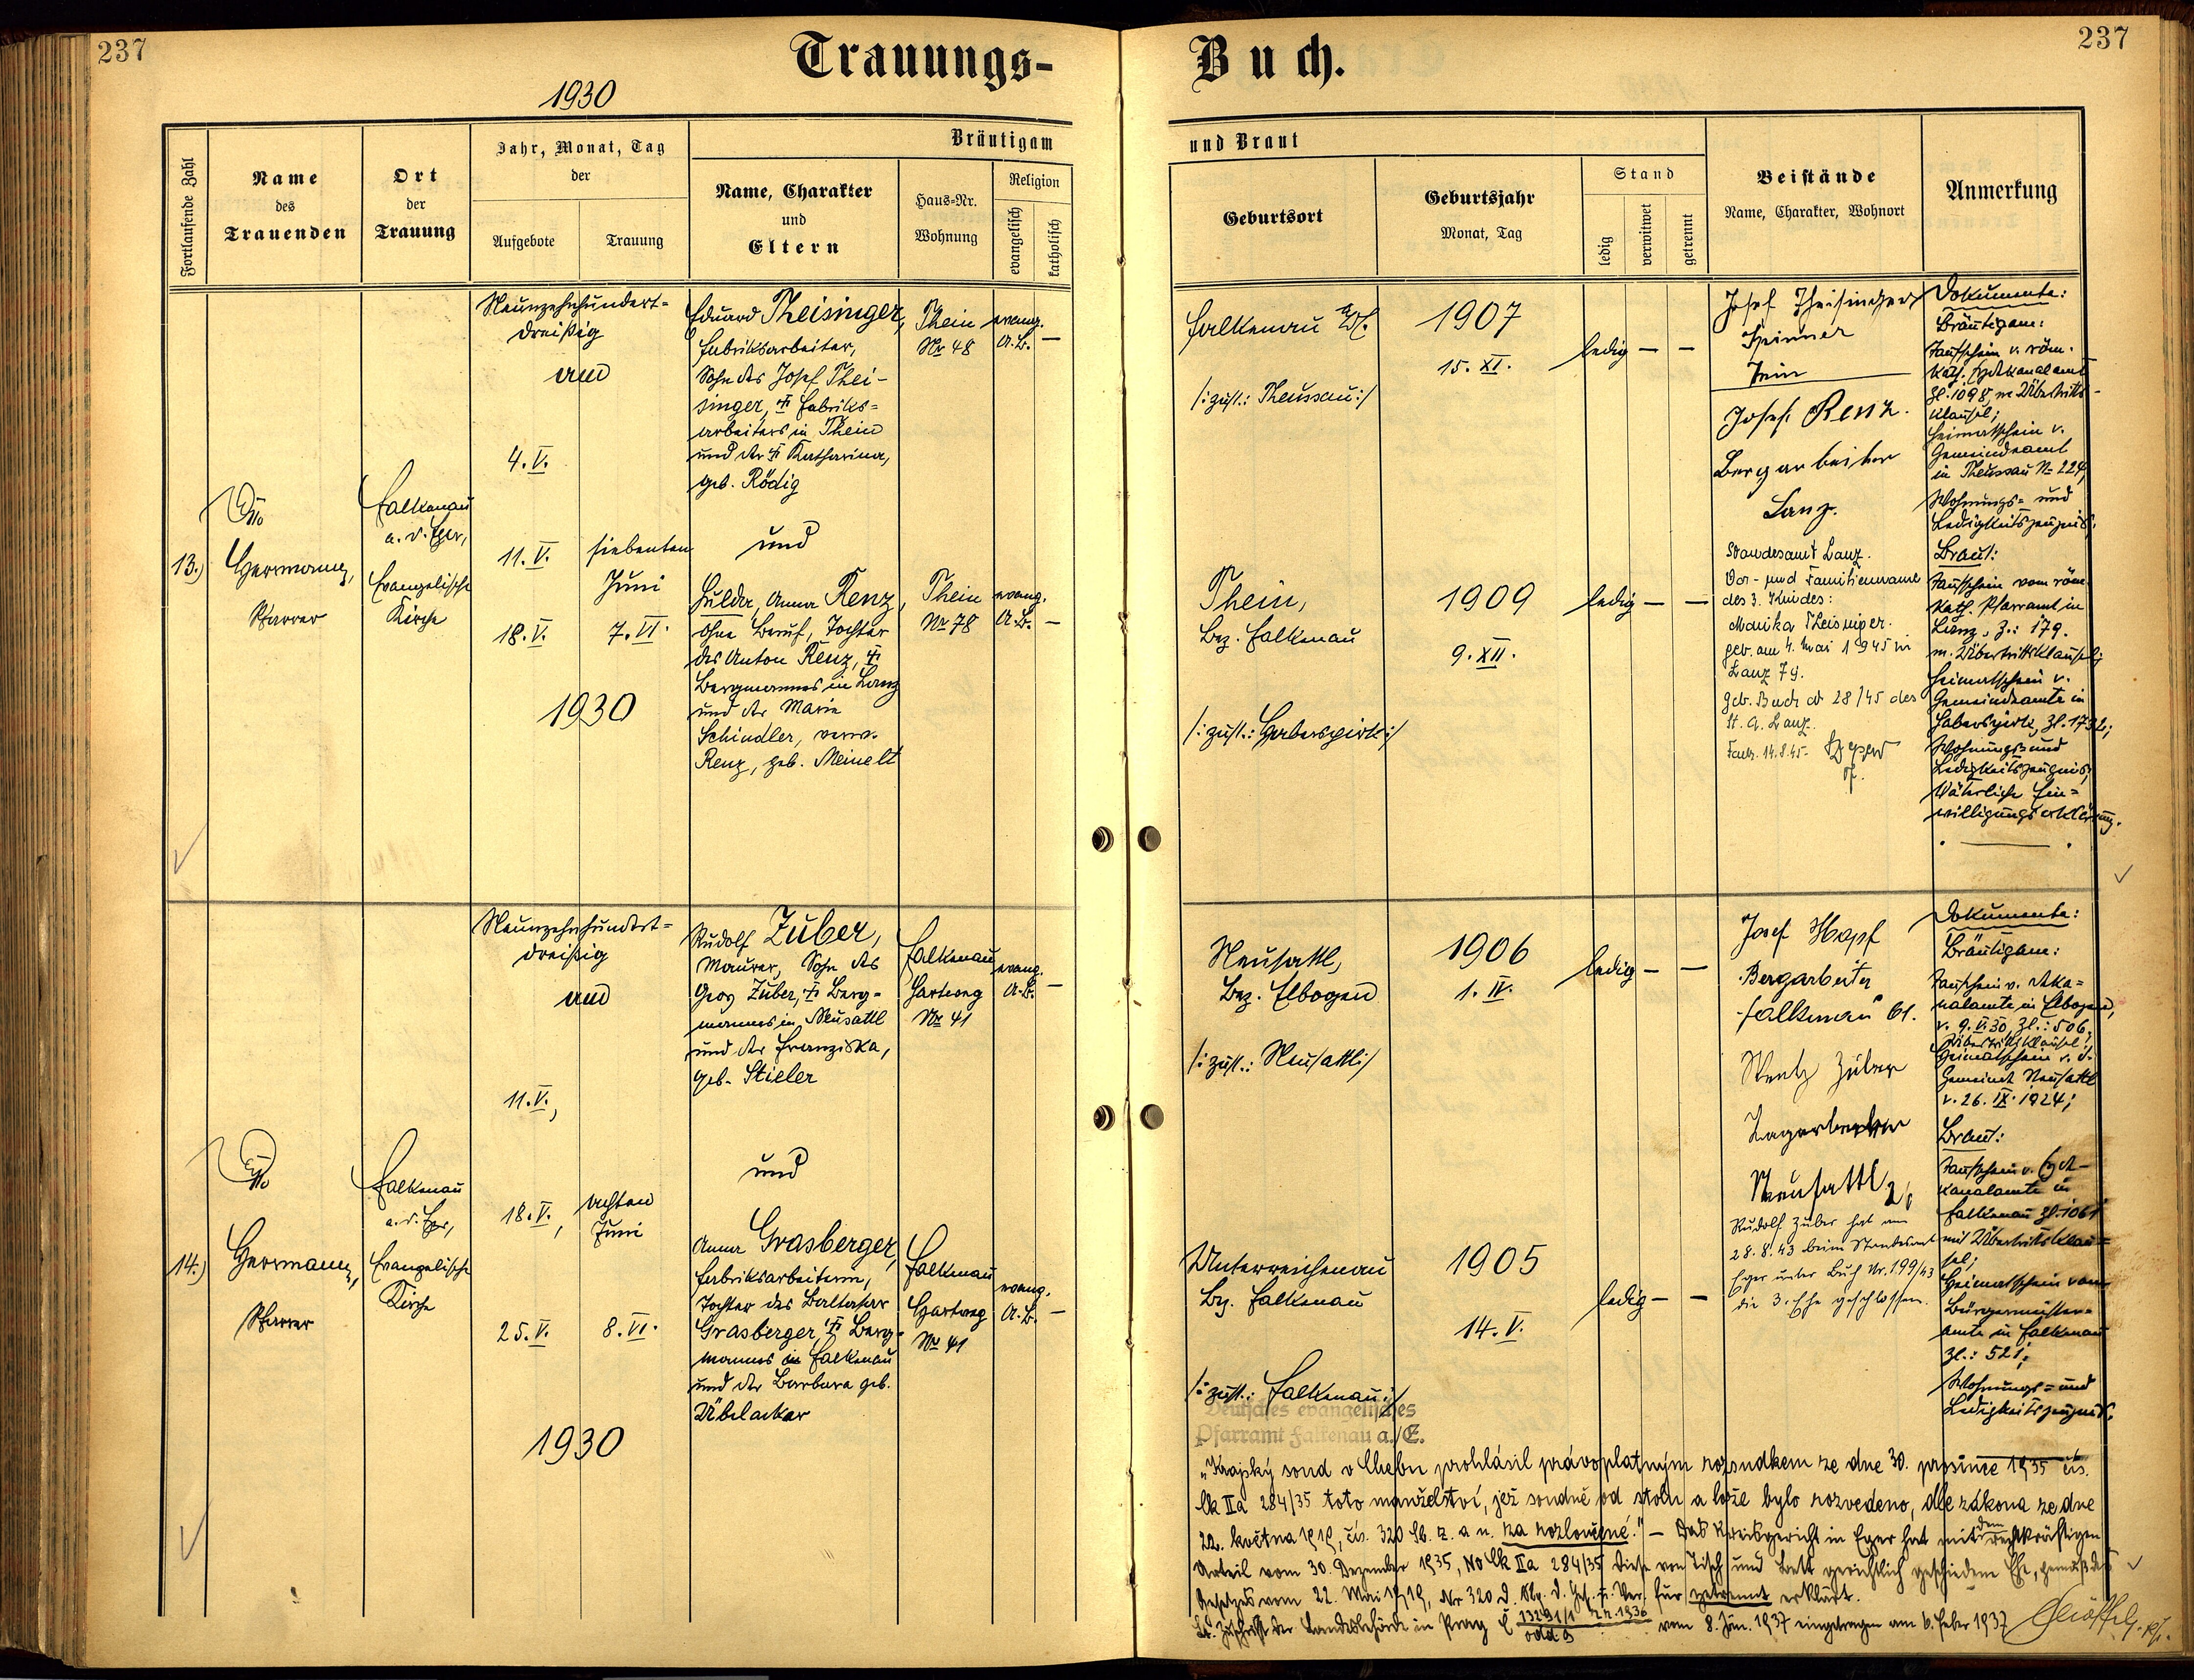 237
Trauungs-
Buch.
237
1930
Fortlaufende Zahl
Name
des
Trauenden
Ort
der
Trauung
Jahr, Monat, Tag
der
Aufgebote
Trauung
Bräutigam
Name, Charakter
und
Eltern
Haus-Nr.
Wohnung
Religion
evangelisch
katholisch
und Braut
Geburtsort
Geburtsjahr
Monat, Tag
Stand
ledig
verwitwet
getrennt
Beistände
Name, Charakter, Wohnort
Anmerkung
13.)
Herrmann,
Pfarrer
Falkenau
a. d. Eger,
Evangelische
Kirche
Neunzehnhundert-
dreißig
4. V.
11. V.
18. V.
siebenten
Juni
7. VI.
1930
Eduard Theisinger,
Fabriksarbeiter,
Sohn des Josef Thei-
singer, Fabriks-
arbeiters in Thein
und der Katharina,
geb. Rödig
und
Hulda, Anna Renz,
ohne Beruf, Tochter
des Anton Renz,
Bergmannes in Lanz
und der Marie
Schindler, verw.
Renz, geb. Meinelt
Thein
Nr 48
evang.
A. B. —
Thein
Nr 78
evang.
A. B. —
Falkenau
/: zust.: Theussau :/
1907
15. XI.
ledig — —
Thein,
Bez. Falkenau
/: zust.: Haberspirk :/
1909
9. XII.
ledig — —
Josef Theisinger
Spinner
Thein
Josef Renz
Bergarbeiter
Lanz.
Standesamt Lanz.
Vor- und Familienname
des 3. Kindes:
Monika Theisinger.
geb. am 4. Mai 1945 in
Lanz 79.
Geb. Buch 28/45 des
St. A. Lanz.
14.8.45.
Dokumente:
Bräutigam:
Taufschein v. röm.
kath. Erzdekanalamt
Zl. 1098, m. Übertritts-
klausel;
Heimatschein v.
Gemeindeamt
in Theussau No 224,
Wohnungs- und
Ledigkeitszeugnis;
Braut:
Taufschein vom röm.
kath. Pfarramt in
Lanz, Z.: 179.
m. Übertrittsklausel;
Heimatschein v.
Gemeindeamte in
Haberspirk, Zl. 1732;
Wohnungs- und
Ledigkeitszeugnis,
Väterliche Ein-
willigungserklärung.
14.)
Herrmann,
Pfarrer
Falkenau
a. d. Eger,
Evangelische
Kirche
Neunzehnhundert-
dreißig
11. V.,
18. V.,
25. V.
achten
Juni
8. VI.
1930
Rudolf Zuber,
Maurer, Sohn des
Georg Zuber, Berg-
mannes in Neusattl
und der Franziska,
geb. Stieler
und
Anna Grasberger,
Fabriksarbeiterin,
Tochter des Baltasar
Grasberger, Berg-
mannes in Falkenau
und der Barbara geb.
Übelacker
Falkenau
Hartweg
Nr 41
evang.
A. B. —
Falkenau
Hartweg
Nr 41
evang.
A. B. —
Neusattl,
Bez. Elbogen
/: zust.: Neusattl :/
1906
1. IV.
ledig — —
Unterreichenau
Bez. Falkenau
/: zust.: Falkenau :/
1905
14. V.
ledig — —
Josef Hopf
Bergarbeiter
Falkenau 61.
Zuber
Neusattl
Rudolf Zuber hat am
28.8.43 beim Standesamt
Eger unter Buch Nr. 199/43
die 3. Ehe geschlossen.
Dokumente:
Bräutigam:
Taufschein v. Deka-
nalamte in Elbogen,
v. 9. V. 30, Zl.: 506,
Übertrittsklausel;
Heimatschein v. d.
Gemeinde Neusattl
v. 26. IX. 1924;
Braut:
Taufschein v. Erzde-
kanalamte in
Falkenau Zl. 1061
mit Übertrittsklau-
sel;
Heimatschein vom
Bürgermeister-
amte in Falkenau
Zl.: 521;
Wohnungs- und
Ledigkeitszeugnis.
Deutsches evangelisches
Pfarramt Falkenau a./E.
"Krajský soud v Chebu prohlásil právoplatným rozsudkem ze dne 30. prosince 1935 čís.
Ck IIa 284/35 toto manželství, jež soudně od stolu a lože bylo rozvedeno, dle zákona ze dne
22. května 1919, čís. 320 Sb. z. a n. za rozloučené." — Das Kreisgericht in Eger hat mit dem rechtkräftigen
Urteil vom 30. Dezember 1935, No Ck IIa 284/35 diese von Tisch und Bett gerichtlich geschiedene Ehe, gemäß des
Gesetzes vom 22. Mai 1919, Nr 320 d. Slg. d. Ges. u. Ver. für getrennt erklärt.
Lt. Zuschrift der Landesbehörde in Prag č 13291/1 z r. 1936 odd 9 vom 8. Jän. 1937 eingetragen am 6. Feber 1937